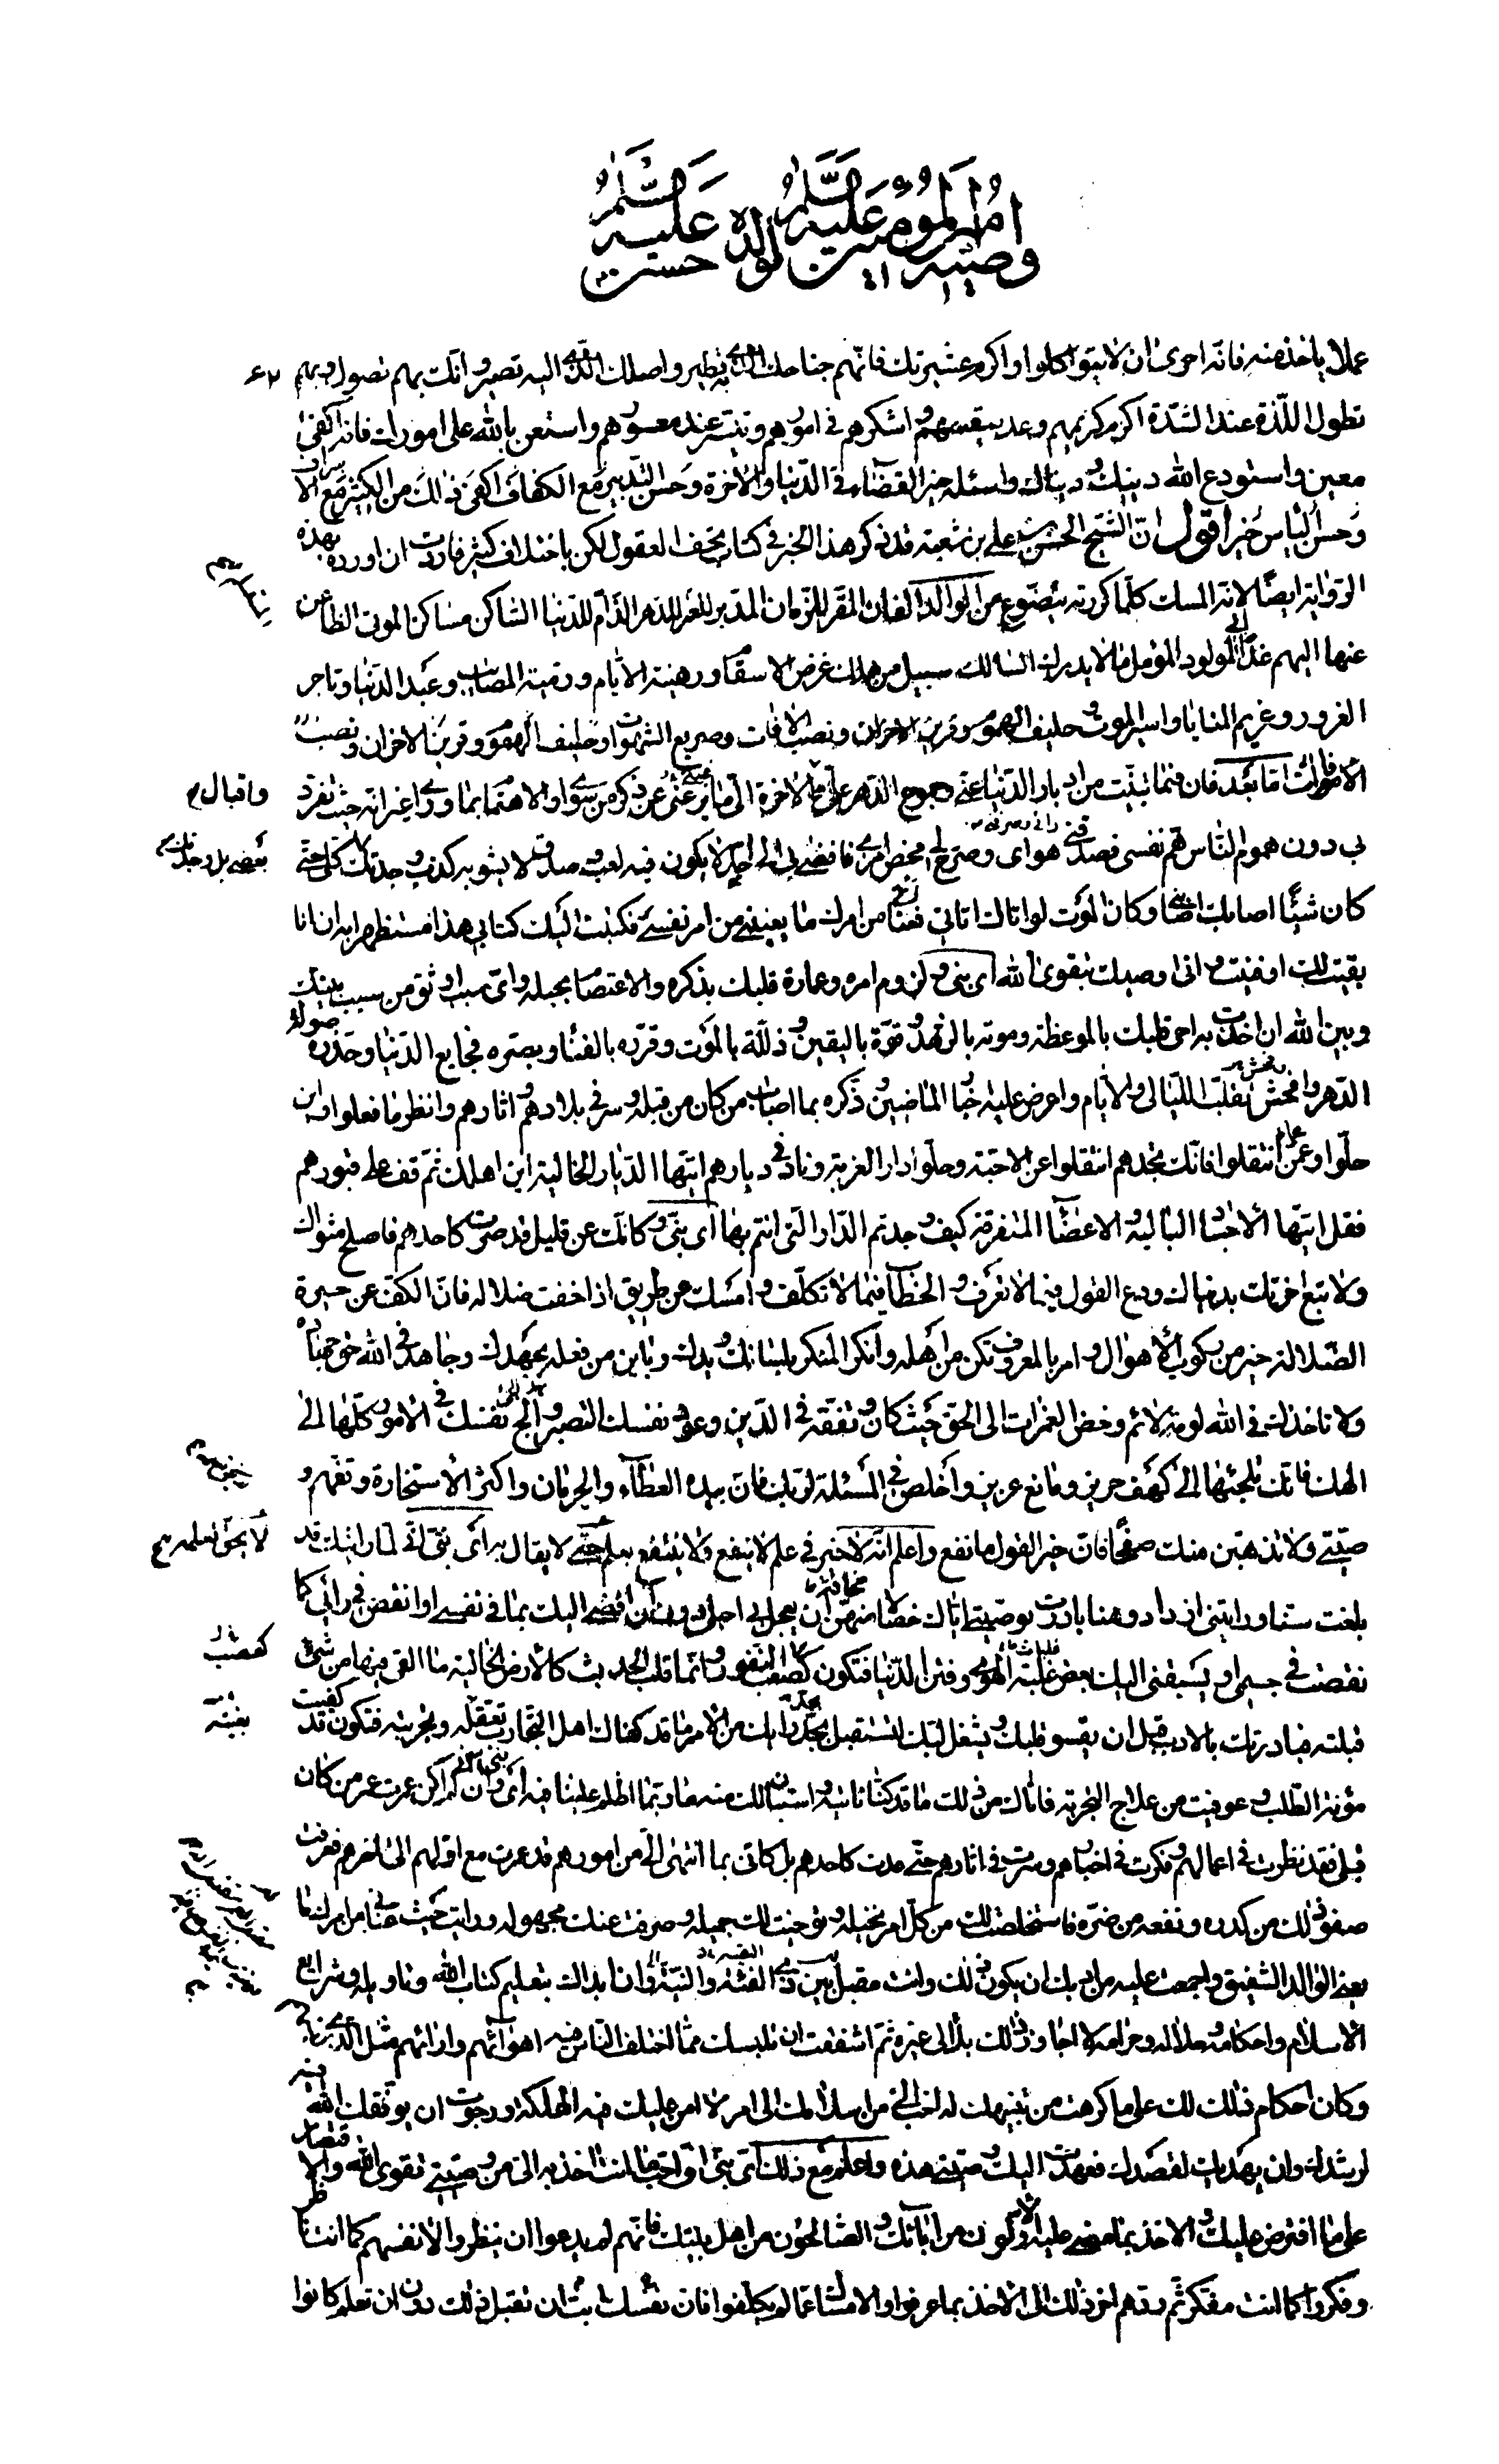 وصية امير المؤمنين عليه السلام لولده حسن عليه السلم
عملا ياخذ منه فانه احرى ان لا يتواكلوا واكرم عشيرتك فانهم جناحك الذي به تطير واصلك الذي اليه تصير وانك بهم تصول وبهم
تطول اللذة عند الشدة اكرم كريمهم وعد سقيمهم واشكرهم في امورهم وتيسر عند معسورهم واستعن بالله على امورك فانه اكفى
معين واستودع الله دينك ودنياك واسئله خير القضاء في الدنيا والاخرة وحسن التدبير مع الكفاف اكفى ذلك من الكثير مع الاسراف
وحسن الياس خير اقول ان الشيخ الحسن بن علي بن شعبة قد ذكر هذا الخبر في كتاب تحف العقول لكن باختلاف كثير فاردت ان اورده بهذه
الرواية ايضا لانه المسك كلما كررته يتضوع من الوالد الفان المقر للزمان المدبر للعمر للدهر الذام للدنيا الساكن مساكن الموتى الظاعن
عنها اليهم غدا الى المولود المؤمل ما لا يدرك السالك سبيل من هلك غرض الاسقام ورهينة الايام ورمية المصائب وعبد الدنيا وتاجر
الغرور وغريم المنايا واسير الموت وحليف الهموم وقرين الاحزان ونصب الافات وصريع الشهوات او حليف الهموم وقرين الاحزان ونصب
الافات اما بعد فان فيما تبينت من ادبار الدنيا عني وجموح الدهر علي واقبال الاخرة الي ما يزعني عن ذكر من سواي والاهتمام بما ورائي غير انه حيث تفرد
بي دون هموم الناس هم نفسي فصدقني رائي وصرفني هواي وصرح لي محض امري فافضى بي الى جد لا يكون فيه لعب وصدق لا يشوبه كذب وجدتك بعضي بل وجدتك كلي حتى
كان شيئا اصابك اصابني وكان الموت لو اتاك اتاني فعناني من امرك ما يعنيني من امر نفسي فكتبت اليك كتابي هذا مستظهرا به ان انا
بقيت لك او فنيت فاني اوصيك بتقوى الله اي بني ولزوم امره وعمارة قلبك بذكره والاعتصام بحبله واي سبب اوثق من سبب بينك
وبين الله ان اخذت به احي قلبك بالموعظة وموته بالزهد وقوه باليقين وذلله بالموت وقرره بالفناء وبصره فجايع الدنيا وحذره صولة
الدهر وفحش تقلب الليالي والايام واعرض عليه اخبار الماضين وذكره بما اصاب من كان من قبله وسر في بلادهم واثارهم وانظر ما فعلوا واين
حلوا وعما انتقلوا فانك تجدهم انتقلوا عن الاحبة وحلوا دار الغربة وناد في ديارهم ايتها الديار الخالية اين اهلك ثم قف على قبورهم
فقل ايتها الاجساد البالية والاعضاء المتفرقة كيف وجدتم الدار التي انتم بها اي بني وكانك عن قليل قد صرت كاحدهم فاصلح مثواك
ولا تبع اخرتك بدنياك ودع القول فيما لا تعرف والخطاب فيما لا تكلف وامسك عن طريق اذا خفت ضلاله فان الكف عن حيرة
الضلالة خير من ركوب الاهوال وامر بالمعروف تكن من اهله وانكر المنكر بلسانك ويدك وباين من فعله بجهدك وجاهد في الله حق جهاده
ولا تاخذك في الله لومة لائم وخض الغمرات الى الحق حيث كان وتفقه في الدين وعود نفسك التصبر والجئ نفسك في الامور كلها الى
الهك فانك تلجئها الى كهف حريز ومانع عزيز واخلص في المسئلة لربك فان بيده العطاء والحرمان واكثر الاستخارة وتفهم
وصيتي ولا تذهبن منك صفحا فان خير القول ما نفع واعلم انه لا خير في علم لا ينفع ولا ينتفع بعلم حتى لا يقال به اي بني اني لما رايتك قد
بلغت سنا ورايتني ازداد وهنا بادرت بوصيتي اياك خصالا منهن ان يعجل بي اجلي دون ان افضي اليك بما في نفسي او انقص في رايي كما
نقصت في جسمي او يسبقني اليك بعض غلبة الهوى وفتن الدنيا فتكون كالصعب النفور وانما قلب الحدث كالارض الخالية ما القي فيها من شئ
قبلته فبادرتك بالادب قبل ان يقسو قلبك ويشتغل لبك لتستقبل بجد رايك من الامر ما قد كفاك اهل التجارب تعقله وتجربته فتكون قد كفيت
مؤنة الطلب وعوفيت من علاج التجربة فاتاك من ذلك ما قد كنا ناتيه واستبان لك منه ما ربما اظلم علينا فيه اي بني وان لم اكن عمرت عمر من كان
قبلي فقد نظرت في اعمالهم وفكرت في اخبارهم وسرت في اثارهم حتى عدت كاحدهم بل كاني بما انتهى الي من امورهم قد عمرت مع اولهم الى اخرهم فعرفت
صفو ذلك من كدره ونفعه من ضره فاستخلصت لك من كل امر نخيله وتوخيت لك جميله وصرفت عنك مجهوله ورايت حيث عناني من امرك ما
يعني الوالد الشفيق واجمعت عليه من ادبك ان يكون ذلك وانت مقبل بين ذي الفئة والنية وان ابداك بتعليم كتاب الله وتاويله وشرايع
الاسلام واحكامه وحلاله وحرامه لا اجاوز ذلك بك الى غيره ثم اشفقت ان يلبسك مما اختلف الناس فيه اهوائهم وارائهم مثل الذي
وكان احكام ذلك لك على ما كرهت من تنبيهك له احب الي من اسلامك الى امر لا امن عليك فيه الهلكة ورجوت ان يوفقك الله فيه
لرشدك وان يهديك لقصدك فعهدت اليك وصيتي هذه واعلم مع ذلك اي بني ان احب ما انت اخذ به الي من وصيتي تقوى الله والاقتصار
على ما افترض عليك والاخذ بما مضى عليه الاولون من ابائك والصالحون من اهل بيتك فانهم لم يدعوا ان ينظروا لانفسهم كما انت ناظر
وفكروا كما انت مفكر ثم ردهم اخر ذلك الى الاخذ بما عرفوا والامساك عما لم يكلفوا فان نفسك ابت ان تقبل ذلك دون ان تعلم كما كانوا